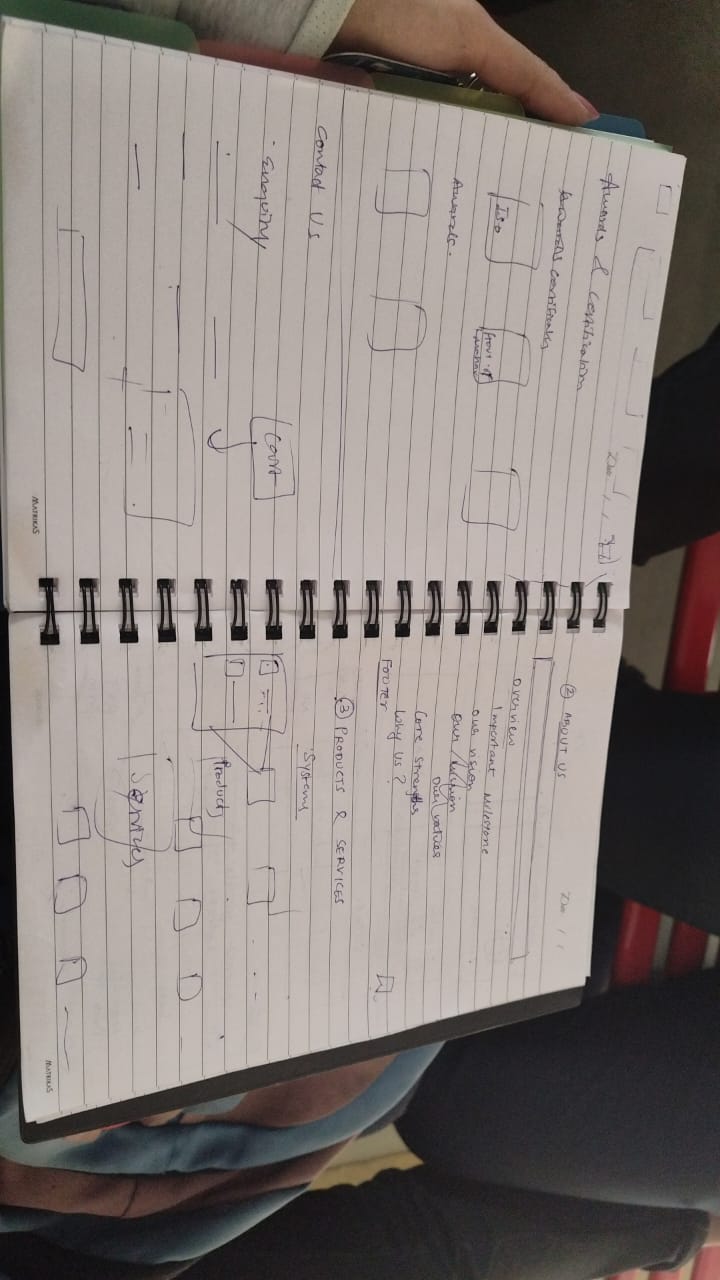 Awards & Certification
Awards certificates
ISO
Govt. of
Awards.
Contact Us
Enquiry
Cart
MATRIKAS
② ABOUT US
Overview
Important Milestone
Our Vision
Our Mission
Our values
Core strengths
Why US?
FOOTER
③ PRODUCTS & SERVICES
Systems
Products
Services
MATRIKAS